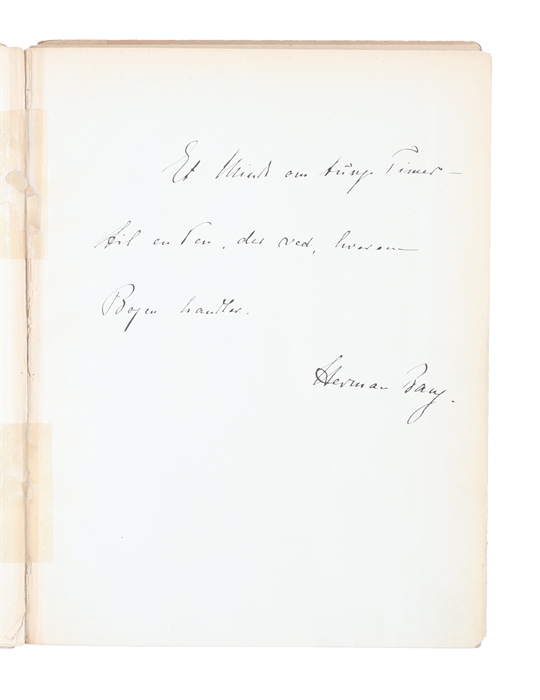 Et Minde om tunge Timer –
til en Ven, der ved, hvorom
Bogen handler.
Herman Bang.